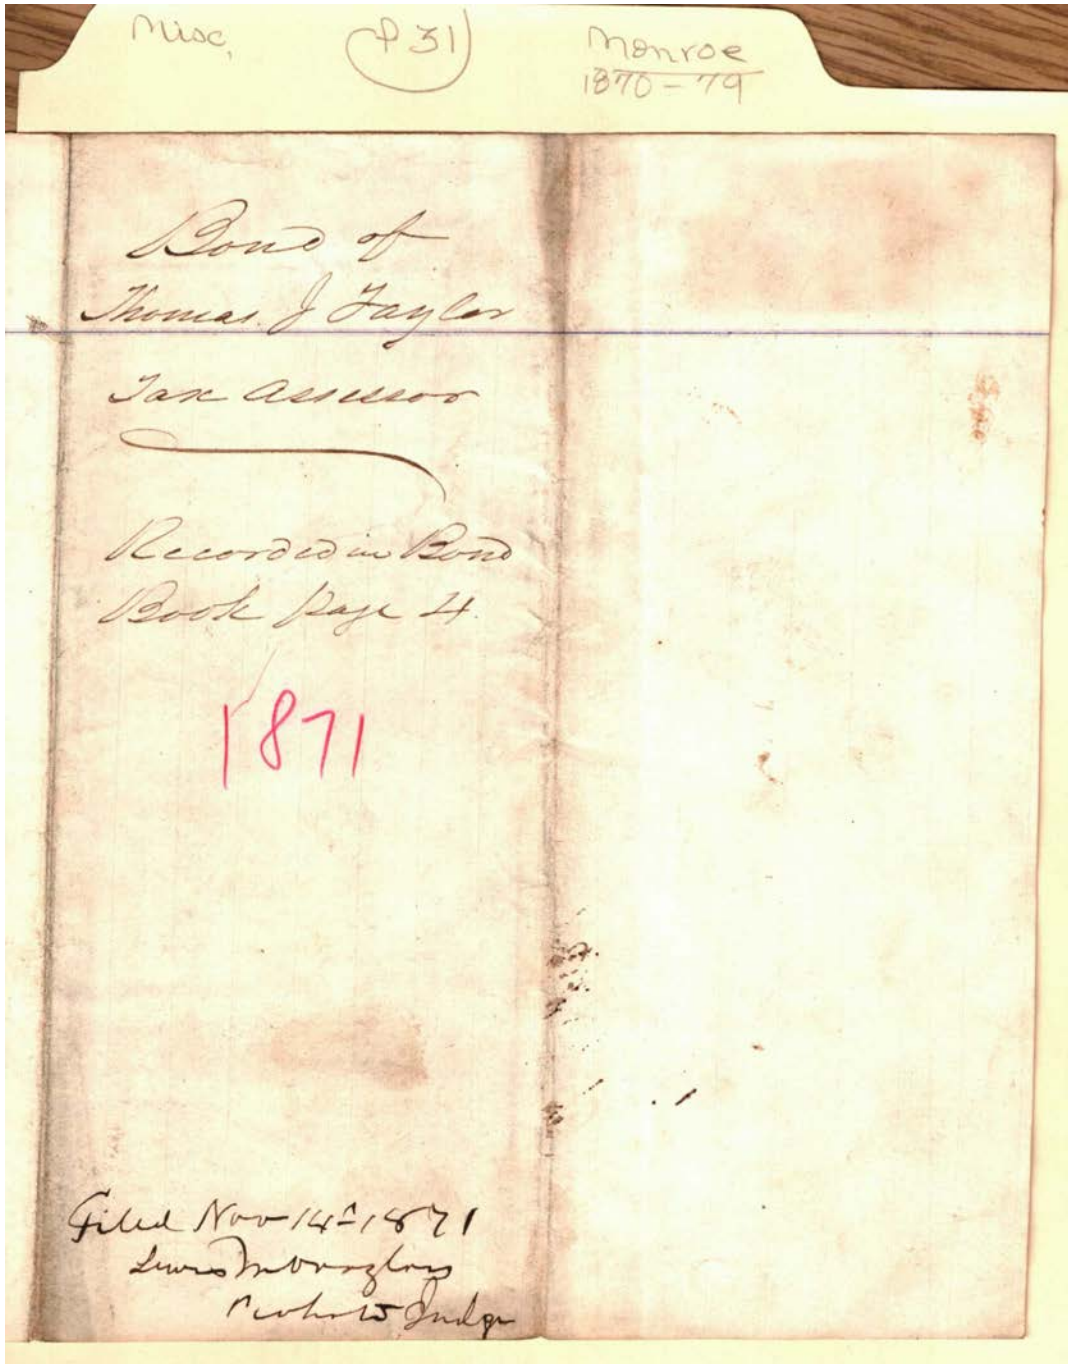 Misc, P31 Monroe
1870-79
Bond of
Thomas J Taylor
Tax Assessor
Recorded in Bond
Book Page 4.
1871
Filed Nov 14th 1871
Lewis M Douglass
Probate Judge